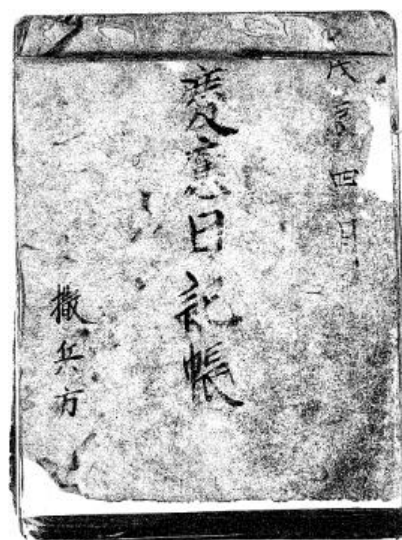 戊辰四月
慶應日記帳
撒兵方